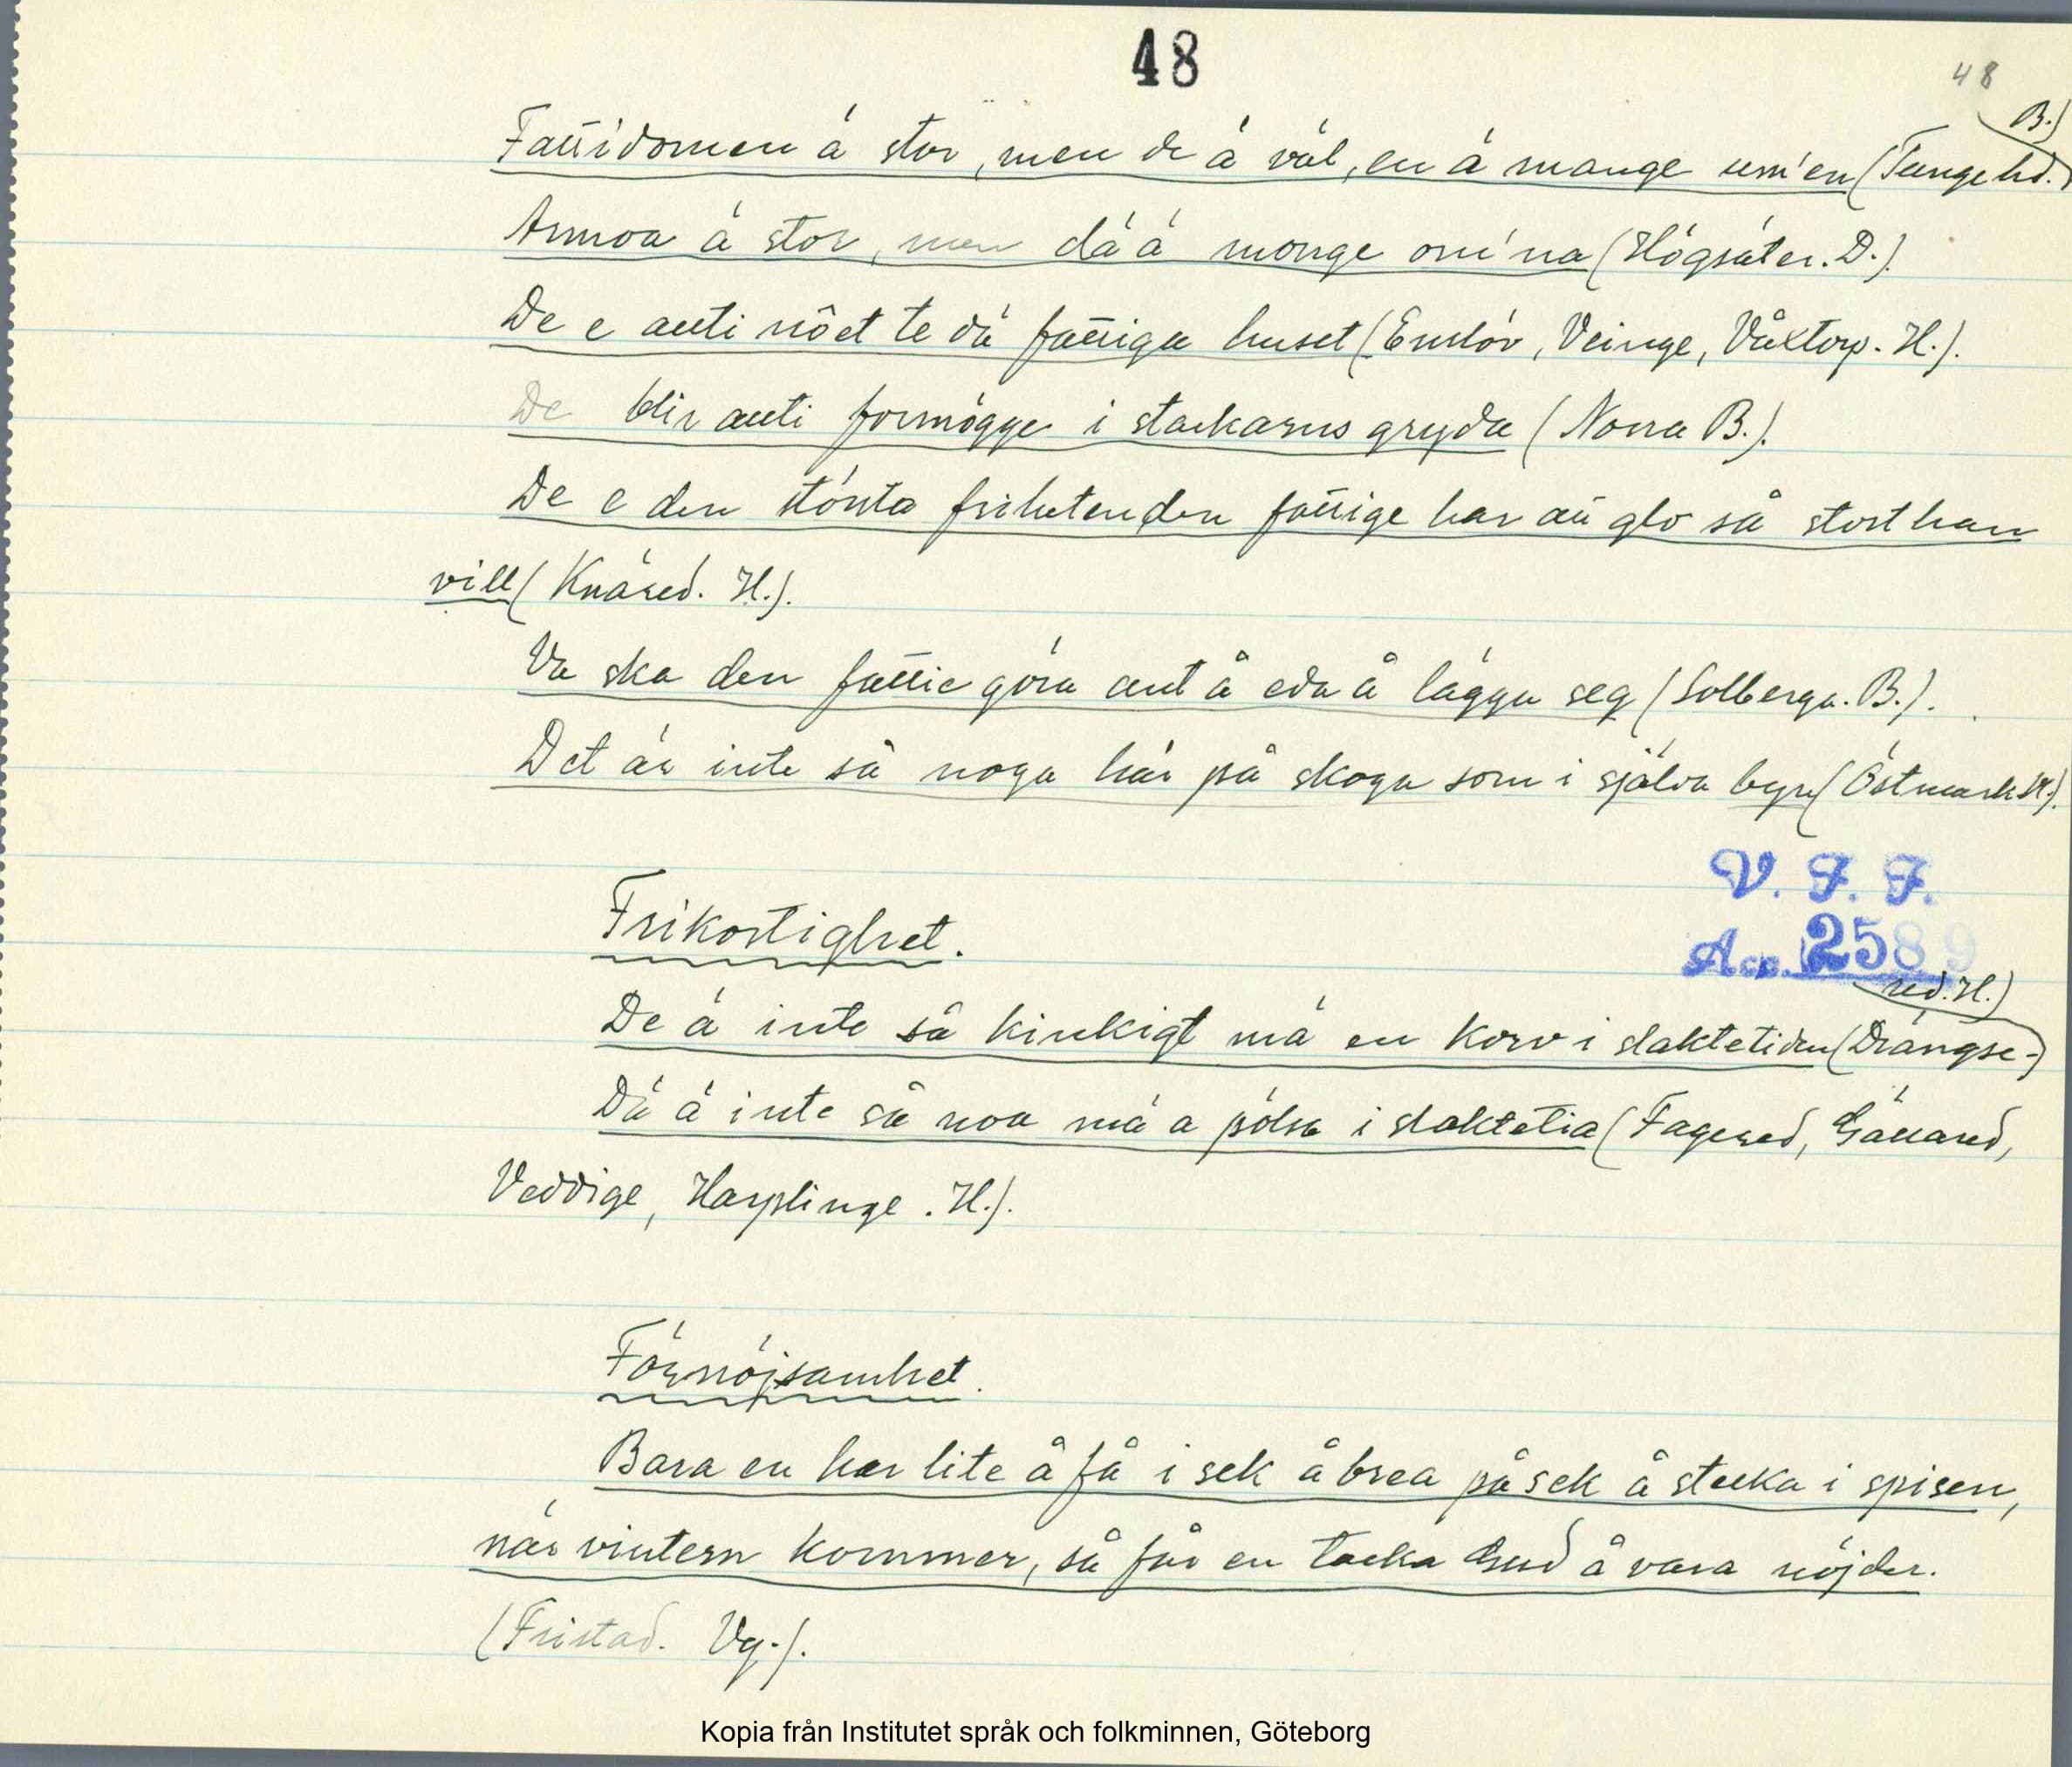 48
48
Fattidomen ä stor, men de ä väl, en ä mange um'en (Tunge hd. B.)
Armoa ä stor, men dä ä monge om'na (Högsäter. D.).
De e auti nöet te dä fattiga huset (Enslöv, Veinge, Våxtorp. H.).
De blir auti formögge i stackarns gryda (Norra B.).
De e den största friheten den fattige har att glo så stort han
vill (Knäred. H.).
Va ska den fattie göra ant å eda å lägga seg (Solberga. B.).
Det är inte så noga här på skoga som i själva byn (Östmark
V. F. F.
Acc. 2589
Frikostighet.
De ä inte så kinkigt mä en korv i slaktetiden (Drängse-
red. H.)
Dä ä inte så noa mä a pölsa i slaktetia (Fagered, Gällared,
Veddige, Harplinge. H.).
Förnöjsamhet.
Bara en har lite å få i sek å brea på sek å stecka i spisen,
när vintern kommer, så får en tacka Gud å vara nöjder.
(Fristad. Vg.).
Kopia från Institutet språk och folkminnen, Göteborg